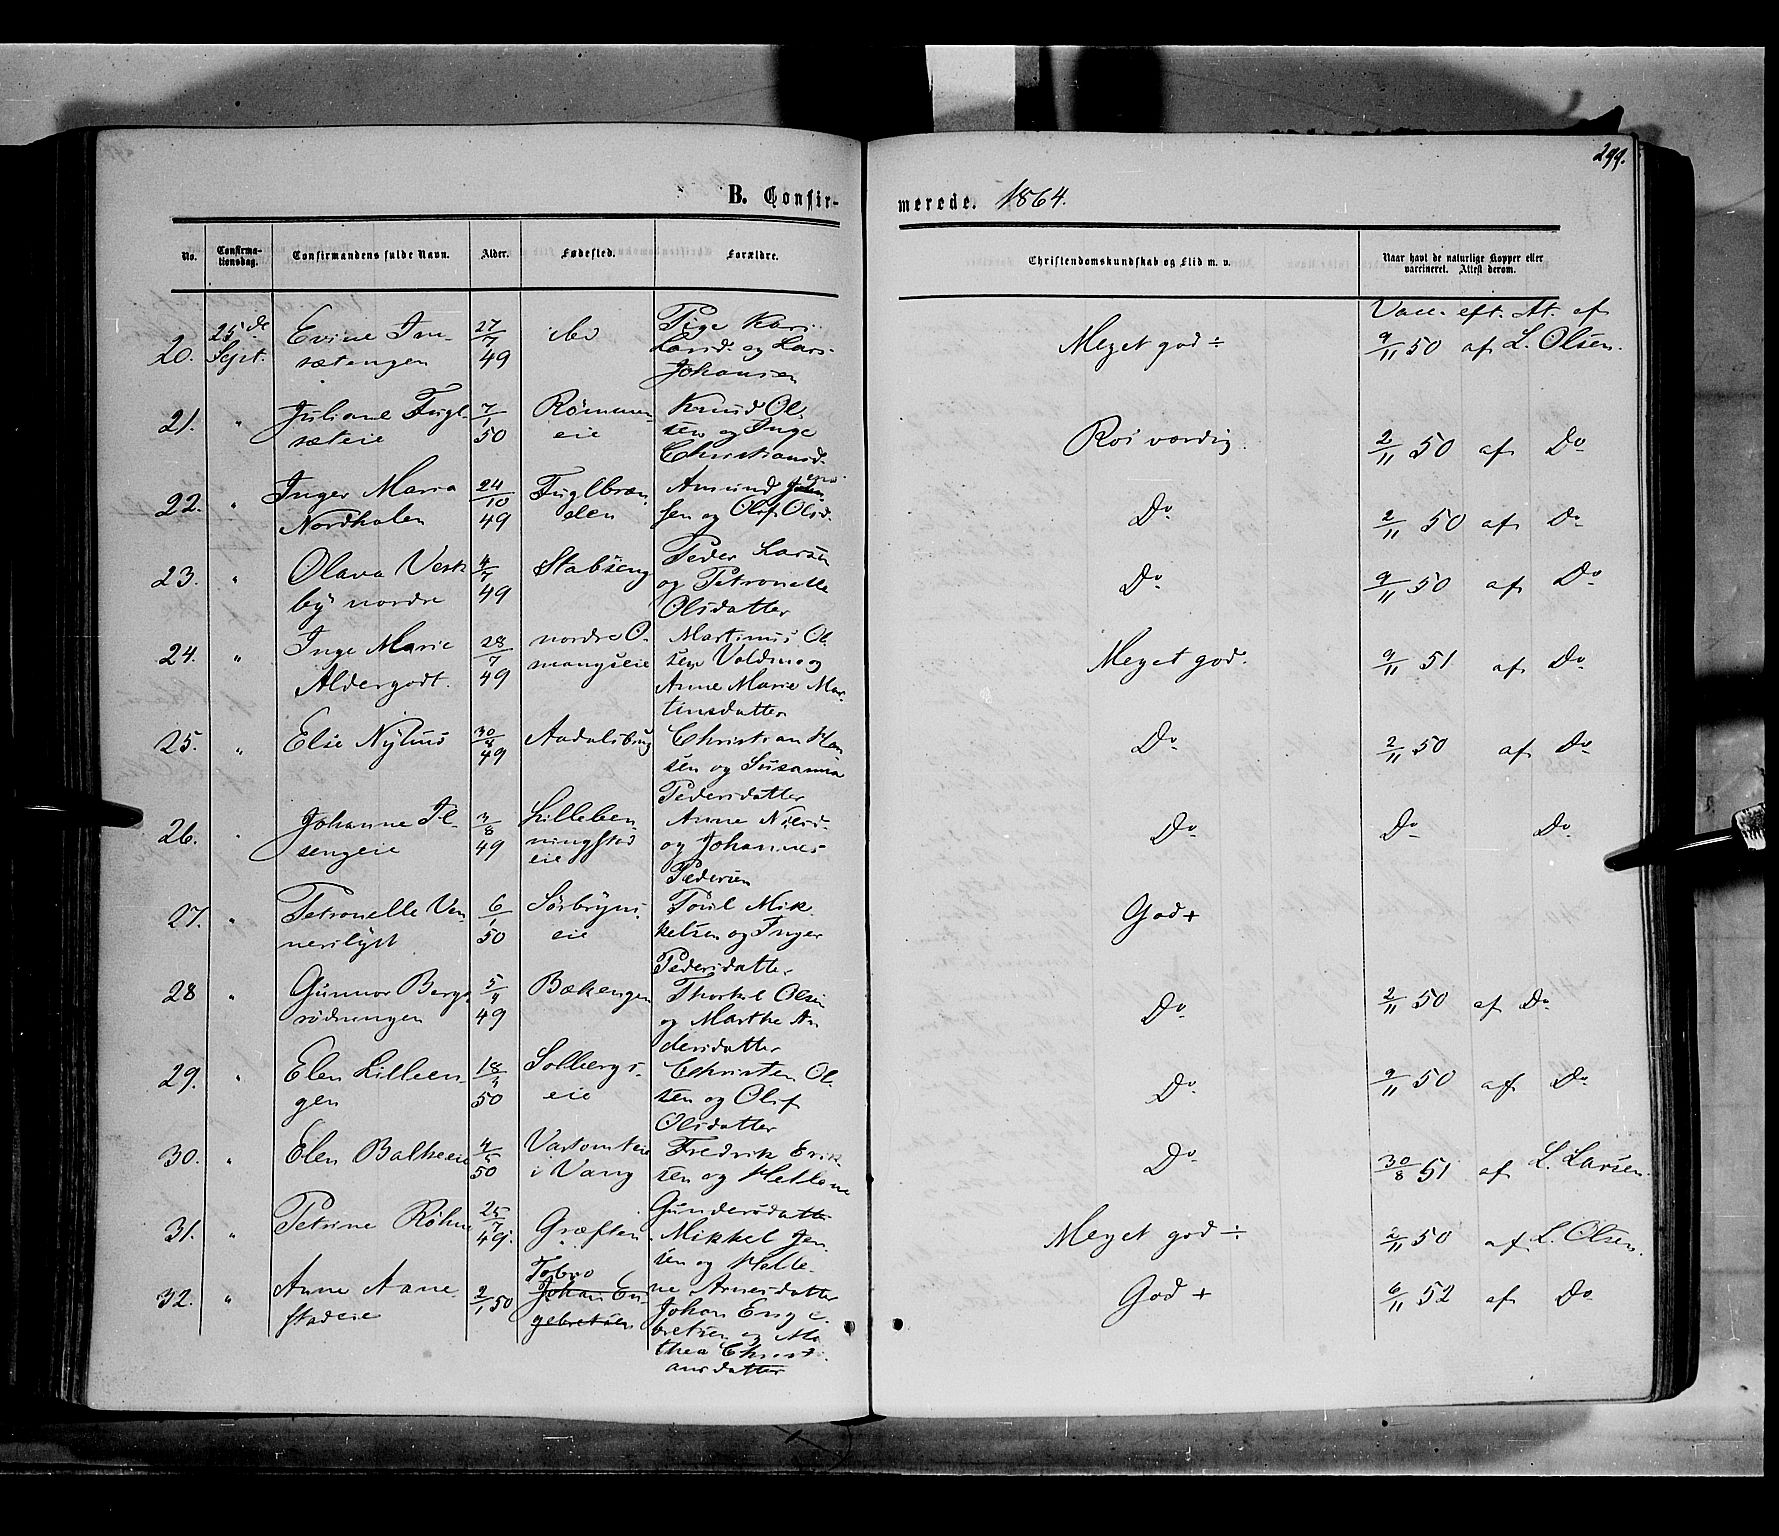 299.
B. Confir-
merede. 1864.
No.
Confirma-
tionsdag.
Confirmandens fulde Navn.
Alder.
Fødested.
Forældre.
Christendomskundskab og Flid m. v.
Naar havt de naturlige Kopper eller
vaccineret. Attest derom.
20. 25de Sept.
Evine
sætengen
27/7 49
ibid
Pige Kari
Larsd. og Lars
Johansen
Meget god ÷
Vacc. eft. At. af
9/11 50 af L. Olsen.
21. "
Juliane Fugl-
sæteie
7/1 50
Rømmen
eie
Knud Ol-
sen og Inge
Christiansd.
Rosværdig.
2/11 50 af Do
22. "
Inger Maria
Nordhalen
24/10 49
Fuglbræn
den
Amund
sen og Olif Olsd.
Do
2/11 50 af Do
23. "
Olava Vest-
by nordre
4/7 49
Stabseng
Peder Larsen
og Petronelle
Olsdatter
Do
9/11 50 af Do
24. "
Inge Marie
Aldergodt.
28/7 49
nordre O-
mangseie
Martinus Ol
sen Voldmo og
Anne Marie Mar-
tinsdatter
Meget god.
9/11 51 af Do
25. "
Else Nyhus
30/8 49
Aadalsbrug
Christian Han
sen og Susanna
Pedersdatter
Do
2/11 50 af Do
26. "
Johanne Il-
sengeie
3/8 49
Lilleben
ningstad
eie
Anne Nilsd.
og Johannes
Pedersen
Do
Do Do
27. "
Petronelle Ven-
nerslyst
6/1 50
Sørbryns
eie
Poul Mik-
kelsen og Inger
Pedersdatter
God +
28 "
Gunnor Bergs
rødningen
5/9 49
Bækengen
Thorkel Olsen
og Marthe An
dersdatter
Do
2/11 50 af Do
29. "
Elen Lilleen-
gen
18/3 50
Solbergs-
eie
Christen Ol-
sen og Olif
Olsdatter
Do
9/11 50 af Do
30. "
Elen Balkeeie
4/5 50
Vastomteie
i Vang
Fredrik Erik-
sen og Hellene
Gundersdatter
Do
30/8 51 af L. Larsen.
31. "
Petrine Røhne
25/7 49.
Græften
Mikkel Jen-
sen og Helle-
ne Arnesdatter
Meget god ÷
2/11 50 af L. Olsen.
32. "
Anne Aane-
stadeie
2/1 50
Tobro
Johan En
gebretsen
Johan Enge-
bretsen og Ma
thea Christi-
ansdatter
God +
6/11 52 af Do